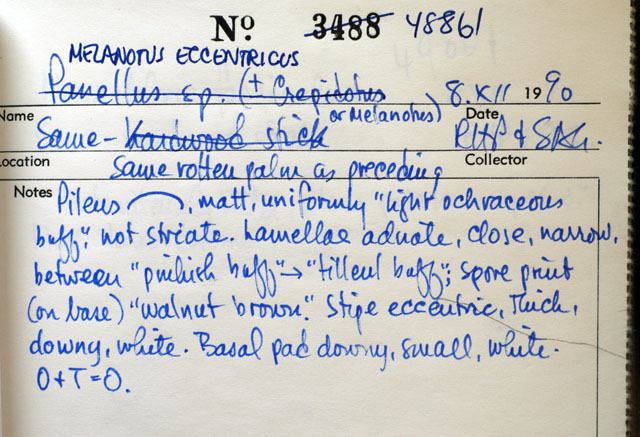 Nº 3488 48861
MELANOTUS ECCENTRICUS
Panellus sp. (± Crepidotus or Melanotus) 8.XII 1990
Name Date
Same - hardwood stick RHP & SAG.
Location Collector
Same rotten palm as preceding
Notes Pileus , matt, uniformly "light ochraceous
buff", not striate. Lamellae adnate, close, narrow,
between "pinkish buff" → "tilleul buff"; spore print
(on base) "walnut brown." Stipe eccentric, thick,
downy, white. Basal pad downy, small, white.
O + T = O.